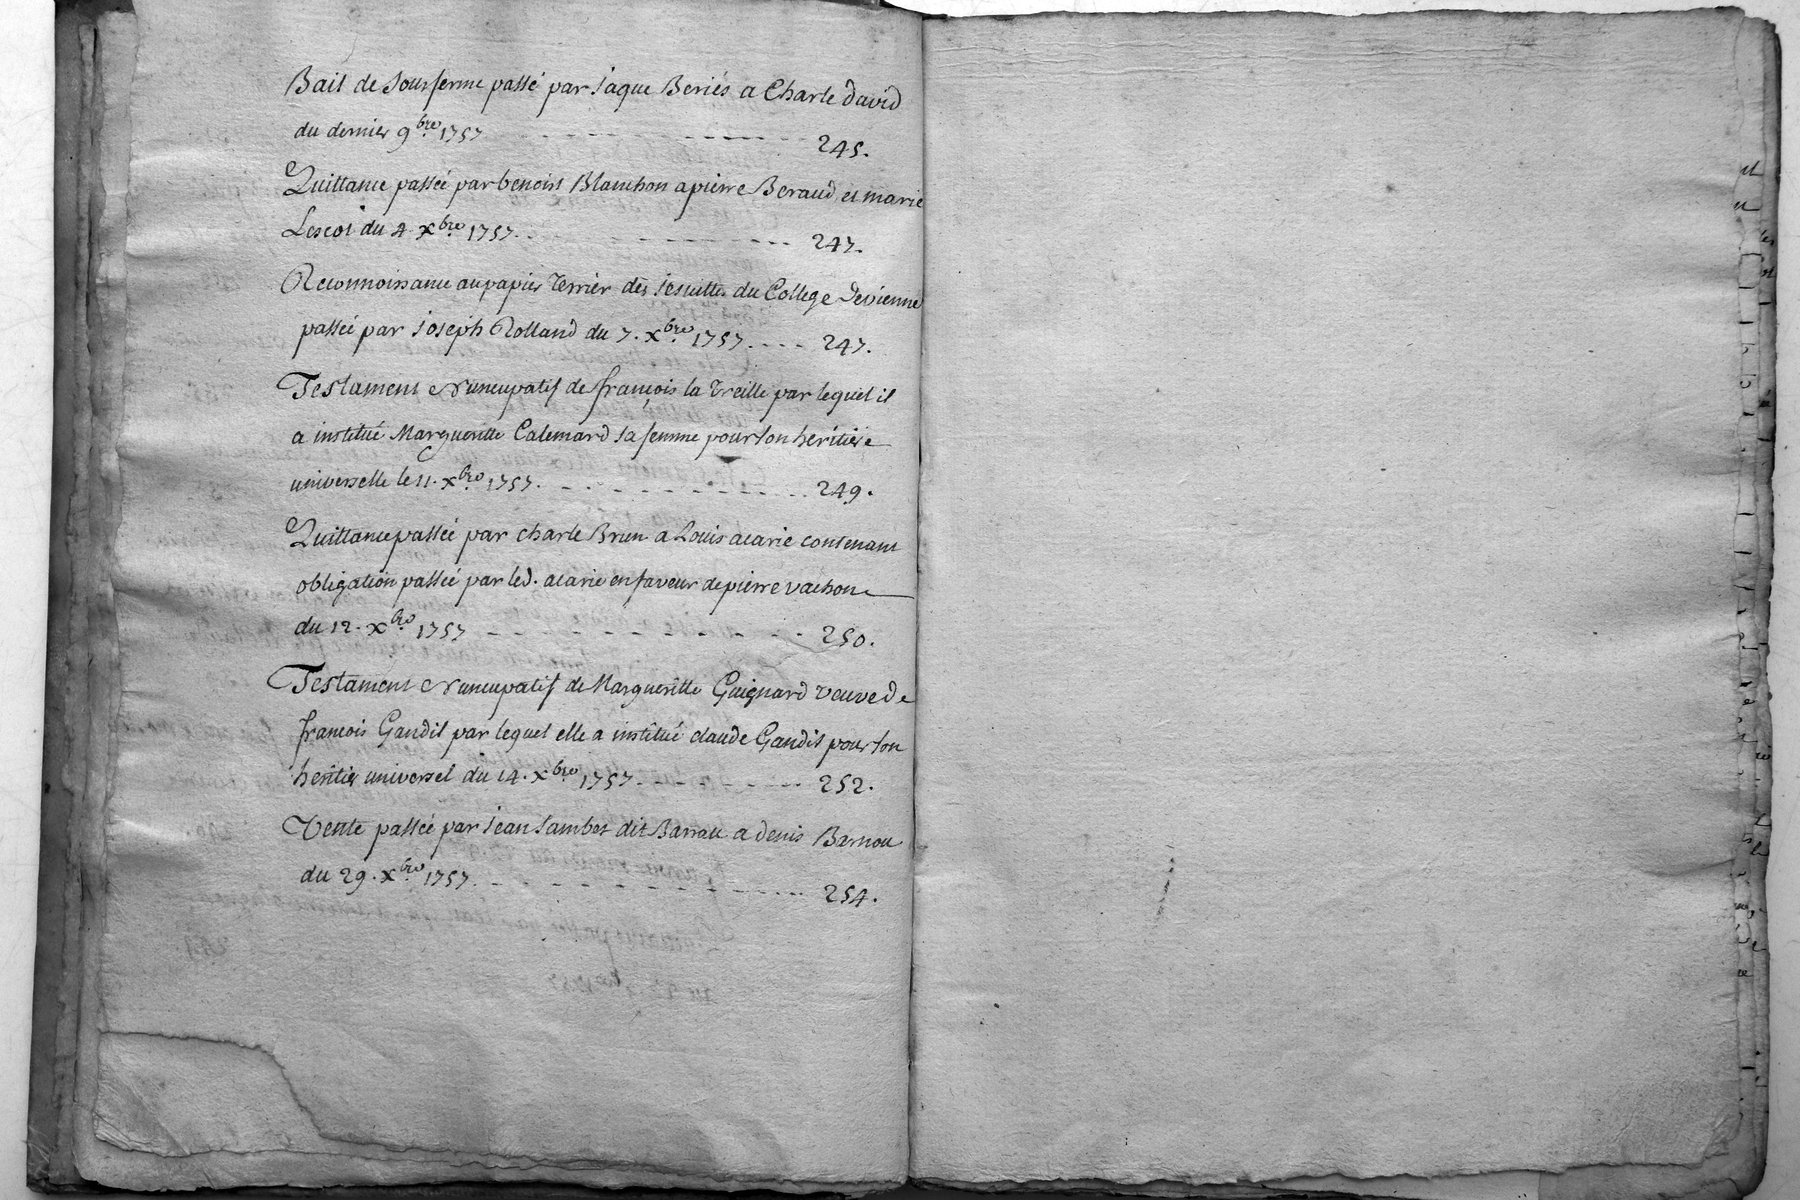 Bail de sousferme passé par Jaque Beriés a Charle david
du dernier 9bre 1757 - - - - - - - 245.
Quittance passée par benoist Blanchon a pierre Beraud et marie
Lescot du 4. Xbre 1757. - - - - - - - 247.
Reconnoissance au papier Terrier des Jesuittes du College de vienne
passée par Joseph Rolland du 7. Xbre 1757. - - - - 247.
Testament Nuncupatif de françois la Treille par lequel il
a institué Margueritte Calemard sa femme pour son heritiere
universelle le 11. Xbre 1757. - - - - - - - 249.
Quittance passée par charle Brun a Louis acarie contenant
obligation passée par led. acarie en faveur de pierre vachon
du 12. Xbre 1757 - - - - - - - - - 250.
Testament Nuncupatif de Margueritte Guignard veuve de
françois Gaudil par lequel elle a institué claude Gaudil pour son
heritier universel du 14. Xbre 1757. - - - - - - 252.
Vente passée par Jean Jambet dit Barrau a denis Barnou
du 29. Xbre 1757. - - - - - - - - - 254.